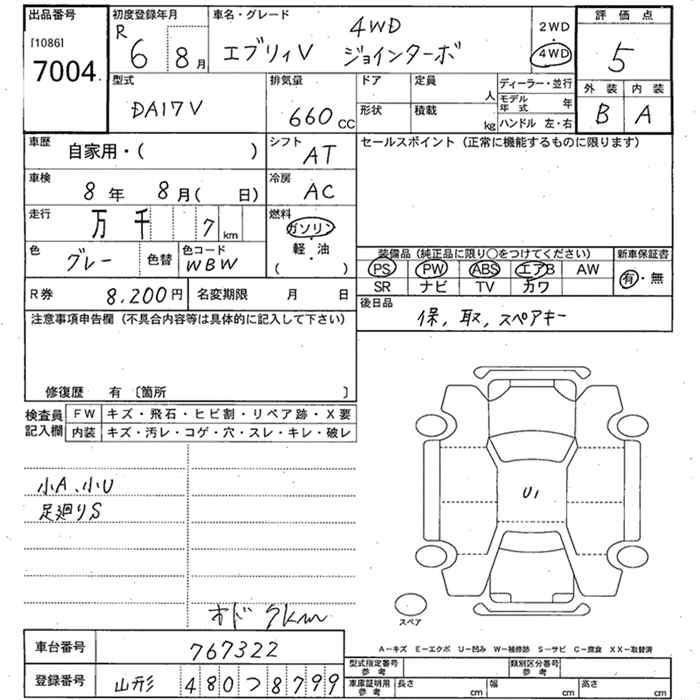 出品番号
[1086]
7004
初度登録年月
R 6 8 月
車名・グレード
4WD
エブリィV ジョインターボ
2WD
4WD
評価点
5
外装 内装
B A
型式
DA17V
排気量
660 cc
ドア
定員
人
形状
積載
kg
ディーラー・並行
モデル年式 年
ハンドル 左・右
車歴
自家用・( )
シフト
AT
車検
8 年 8 月( 日)
冷房
AC
走行
万 千 7 km
燃料
ガソリン
・
軽油
( )
色
グレー
色替
色コード
WBW
R券
8,200円
名変期限 月 日
セールスポイント(正常に機能するものに限ります)
装備品(純正品に限り○をつけてください)
PS PW ABS エアB AW
SR ナビ TV カワ
新車保証書
有・無
後日品
保, 取, スペアキー
注意事項申告欄(不具合内容等は具体的に記入して下さい)
修復歴 有〔箇所 〕
検査員記入欄
FW キズ・飛石・ヒビ割・リペア跡・X要
内装 キズ・汚レ・コゲ・穴・スレ・キレ・破レ
小A、小U
足廻りS
オド 7km
U1
スペア
A-キズ E-エクボ U-凹み W-補修跡 S-サビ C-腐食 XX-取替済
車台番号
767322
登録番号
山形 480つ8799
型式指定番号
参考
類別区分番号
参考
車庫証明用
参考
長さ cm
幅 cm
高さ cm